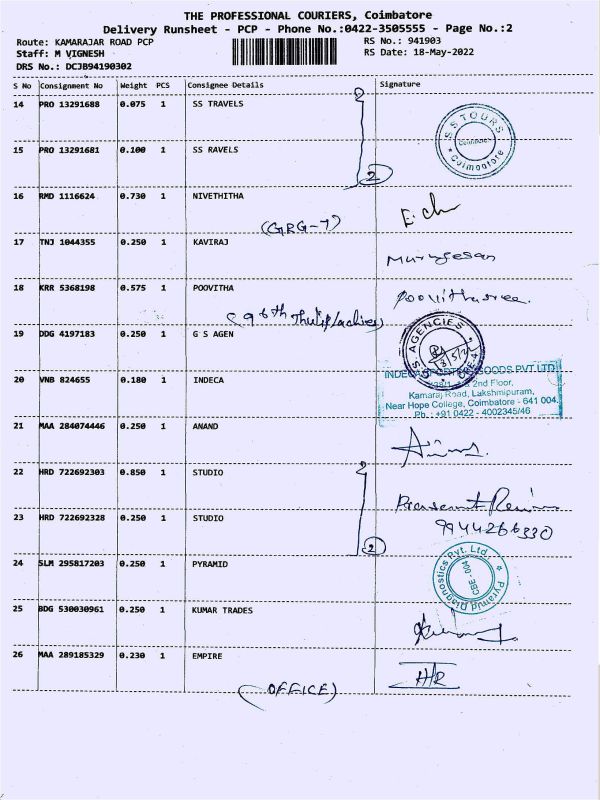 THE PROFESSIONAL COURIERS, Coimbatore
Delivery Runsheet - PCP - Phone No.:0422-3505555 - Page No.:2
Route: KAMARAJAR ROAD PCP
RS No.: 941903
Staff: M VIGNESH
RS Date: 18-May-2022
DRS No.: DCJB94190302
S No Consignment No Weight PCS Consignee Details Signature
14 PRO 13291688 0.075 1 SS TRAVELS
2
S S TOURS
Coimbatore
15 PRO 13291681 0.100 1 SS RAVELS
2
16 RMD 1116624 0.730 1 NIVETHITHA
(GRG-7)
17 TNJ 1044355 0.250 1 KAVIRAJ
Murugesan
18 KRR 5368198 0.575 1 POOVITHA
Poovithasree.
19 DDG 4197183 0.250 1 G S AGEN
AGENCIES
20 VNB 824655 0.180 1 INDECA
INDECA SPORTING GOODS PVT. LTD
2nd Floor,
Kamaraj Road, Lakshmipuram,
Near Hope College, Coimbatore - 641 004.
Ph. : +91 0422 - 4002345/46
21 MAA 284074446 0.250 1 ANAND
22 HRD 722692303 0.850 1 STUDIO
2
23 HRD 722692328 0.250 1 STUDIO
9944266330
2
24 SLM 295817203 0.250 1 PYRAMID
Pyramid Diagnostics Pvt. Ltd.
CBE - 004
25 BDG 530030961 0.250 1 KUMAR TRADES
26 MAA 289185329 0.230 1 EMPIRE
(OFFICE)